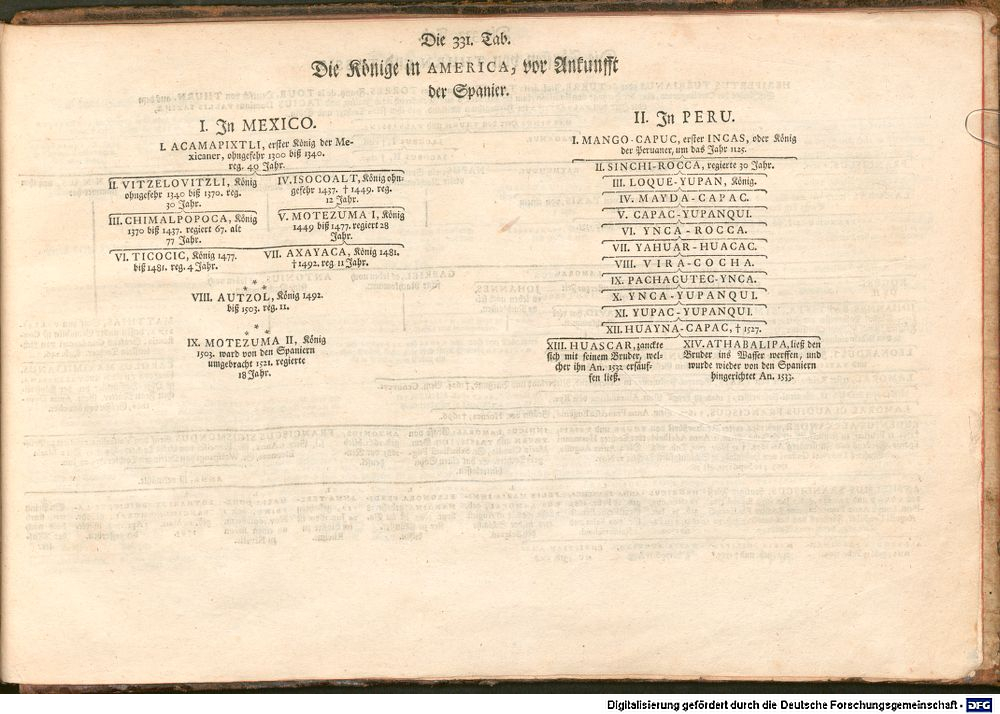 Die 331. Tab.
Die Könige in AMERICA, vor Ankunfft
der Spanier.
I. In MEXICO.
I. ACAMAPIXTLI, erster König der Me-
xicaner, ohngefehr 1300 biß 1340.
reg. 40 Jahr.
II. VITZELOVITZLI, König
ohngefehr 1340 biß 1370. reg.
30 Jahr.
III. CHIMALPOPOCA, König
1370 biß 1437. regiert 67. alt
77 Jahr.
IV. ISOCOALT, König ohn-
gefehr 1437. † 1449. reg.
12 Jahr.
V. MOTEZUMA I, König
1449 biß 1477. regiert 28
Jahr.
VI. TICOCIC, König 1477.
biß 1481. reg. 4 Jahr.
VII. AXAYACA, König 1481.
† 1492. reg. 11 Jahr.
* * *
VIII. AUTZOL, König 1492.
biß 1503. reg. 11.
* * *
IX. MOTEZUMA II, König
1503. ward von den Spaniern
umgebracht 1521. regierte
18 Jahr.
II. In PERU.
I. MANGO-CAPUC, erster INCAS, oder König
der Peruaner, um das Jahr 1125.
II. SINCHI-ROCCA, regierte 30 Jahr.
III. LOQUE-YUPAN, König.
IV. MAYDA-CAPAC.
V. CAPAC-YUPANQUI.
VI. YNCA-ROCCA.
VII. YAHUAR-HUACAC.
VIII. VIRA-COCHA.
IX. PACHACUTEC-YNCA.
X. YNCA-YUPANQUI.
XI. YUPAC-YUPANQUI.
XII. HUAYNA-CAPAC, † 1527.
XIII. HUASCAR, zanckte
sich mit seinem Bruder, wel-
cher ihn An. 1532 ersäuf-
fen ließ.
XIV. ATHABALIPA, ließ den
Bruder ins Wasser werffen, und
wurde wieder von den Spaniern
hingerichtet An. 1533.
Digitalisierung gefördert durch die Deutsche Forschungsgemeinschaft - DFG